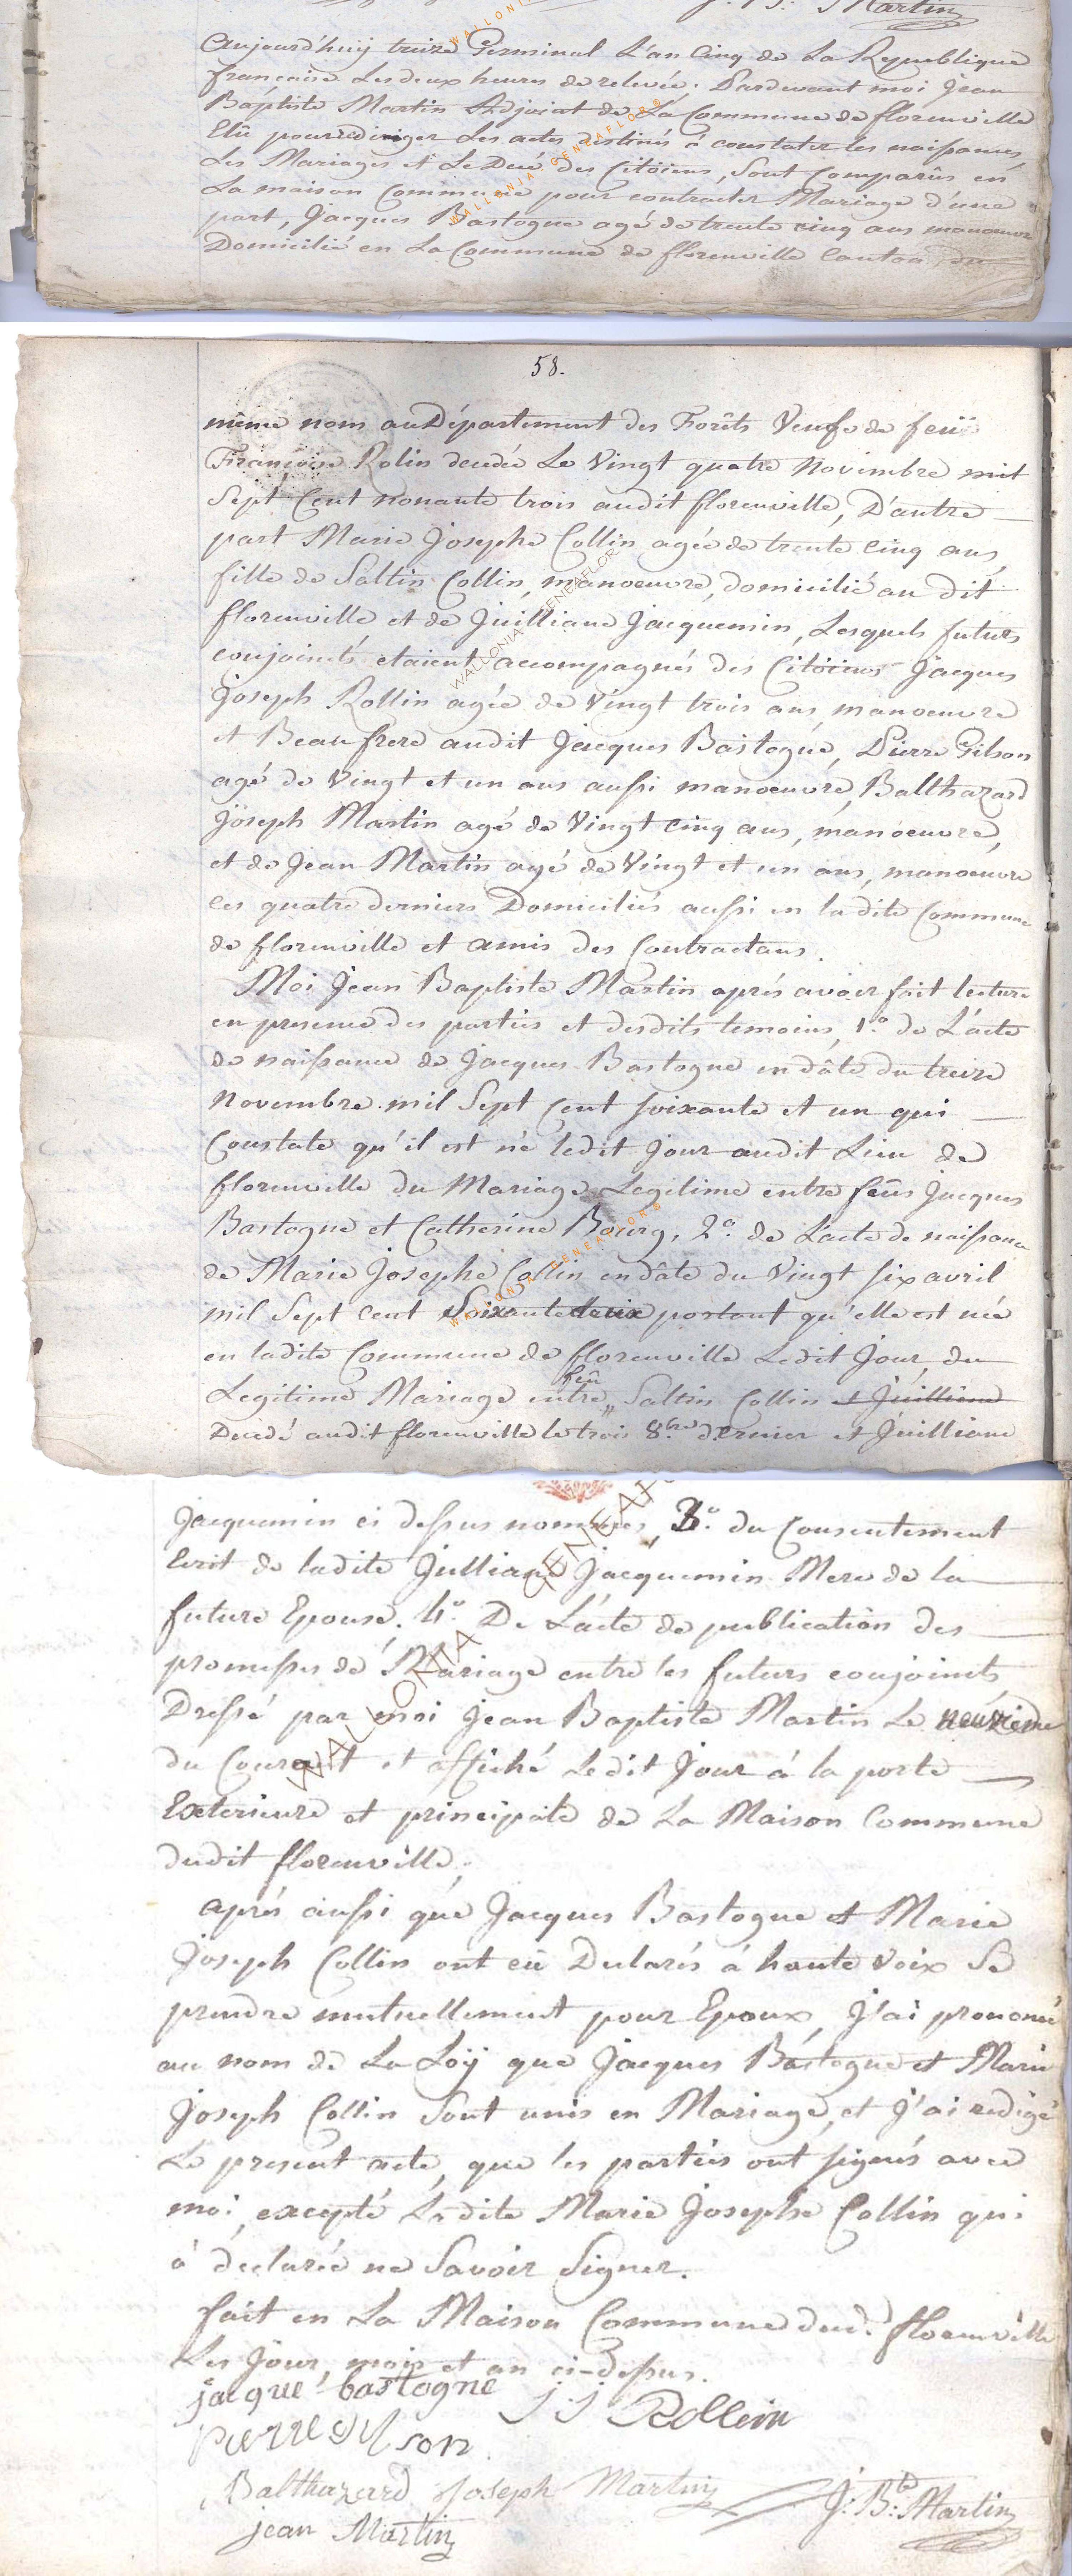 J: B: Martin
Aujourd'huÿ treize Germinal L'an Cinq de La Republique
françaisse Les deux heures de relevée. Pardevant moi Jean
Baptiste Martin Adjoint de La Commune de florenville
Elû pour rediger Les actes destinés à constater les naissances,
Les Mariages et Le Decé des Citoiens, Sont Comparûs en
La maison Commune pour contracter Mariage d'une
part, Jacques Bastogne agé de trente cinq ans manoeuvre
Domicilié en La Commune de florenville Canton du
58.
même nom au Département des Forêts Veufe de feüe
Françoise Rolin decedée Le Vingt quatre Novembre mil
Sept Cent nonante trois audit florenville, D'autre
part Marie Josephe Collin agée de trente cinq ans,
fille de Saltin Collin, manoeuvre, domicilié au dit
florenville et de Juilliane Jacquemin, Lesquels futurs
conjoincts etaient accompagnés des Citoiens Jacques
Joseph Rollin agée de Vingt trois ans, manoeuvre
et Beaufrere audit Jacques Bastogne, Pierre Gilson
agé de Vingt et un ans aussi manoeuvre, Balthazard
Joseph Martin agé de Vingt cinq ans, manoeuvre,
et de Jean Martin agé de Vingt et un ans, manoeuvre
ces quatre derniers Domiciliés aussi en ladite Commune
de florenville et amis des Contractans.
Moi Jean Baptiste Martin aprés avoir fait lecture
en presence des parties et desdits temoins, 1.° de L'acte
de naissance de Jacques Bastogne en dâte du treize
Novembre mil Sept Cent soixante et un qui
Constate qu'il est né ledit Jour audit Lieu de
florenville du Mariage Legitime entre feûs Jacques
Bastogne et Catherine Bourg, 2.° de L'acte de naissance
de Marie Josephe Collin en dâte du Vingt six avril
mil Sept cent Soixante deuxe portant qu'elle est née
en ladite Commune de florenville Ledit Jour, du
feû
Legitime Mariage entre Saltin Collin et Juilliane
Decedé audit florenville le trois 8.bre dernier et Juilliane
Jacquemin ci dessus nommés, 3.° du Consentement
Ecrit de ladite Julliane Jacquemin Mere de la
future Epouse. 4.° De L'acte de publication des
promesses de Mariage entre les futurs conjoincts
Dressé par moi Jean Baptiste Martin Le neuvieme
du Courant et affiché Ledit Jour à la porte
Exterieure et principale de La Maison Commune
dudit florenville.
aprés aussi que Jacques Bastogne et Marie
Joseph Collin ont eû Declarés à haute Voix Se
prendre mutuellement pour Epoux, J'ai prononcé
au nom de La Loÿ que Jacques Bastogne et Marie
Joseph Collin Sont unis en Mariage, et J'ai redigé
Le present acte, que les parties ont signés avec
moi, excepté Ladite Marie Josephe Collin qui
à declarée ne Savoir Signer.
fait en La Maison Commune dud.t florenville
Les Jour, mois et an ci-dessus.
jacque bastogne J. J Rollein
pierre gilson
Balthazard Joseph Martin J: B:te Martin
jean Martin